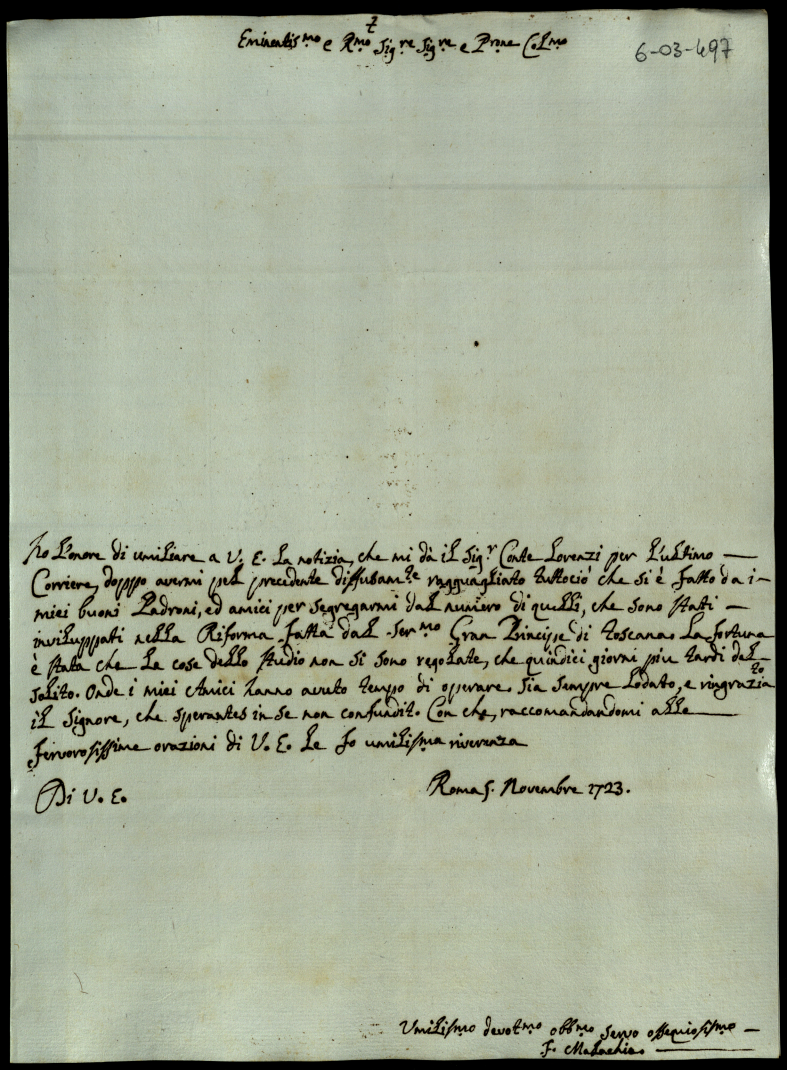 Eminentis.mo e R.mo Sig.re Sig.re e Prone Col.mo
6-03-497
Ho l'onore di umiliare a V. E. la notizia, che mi dà il Sig.r Conte Lorenzi per l'ultimo
Corriere, doppo avermi pel precedente diffusam.te ragguagliato tuttociò che si è fatto da i
miei buoni Padroni, ed amici per segregarmi dal numero di quelli, che sono stati
inviluppati nella Riforma fatta dal Ser.mo Gran Principe di Toscana. La fortuna
è stata che le cose dello studio non si sono regolate, che quindici giorni piu tardi del
solito. Onde i miei Amici hanno avuto tempo di operare. Sia sempre lodato, e ringrazia.to
il Signore, che sperantes in se non confundit. Con che, raccomandandomi alle
fervorosissime orazioni di V. E. le fo umilisma riverenza
Di V. E.
Roma 5. Novembre 1723.
Umilismo devot.mo obb.mo servo ossequiosismo
F. Malachia.